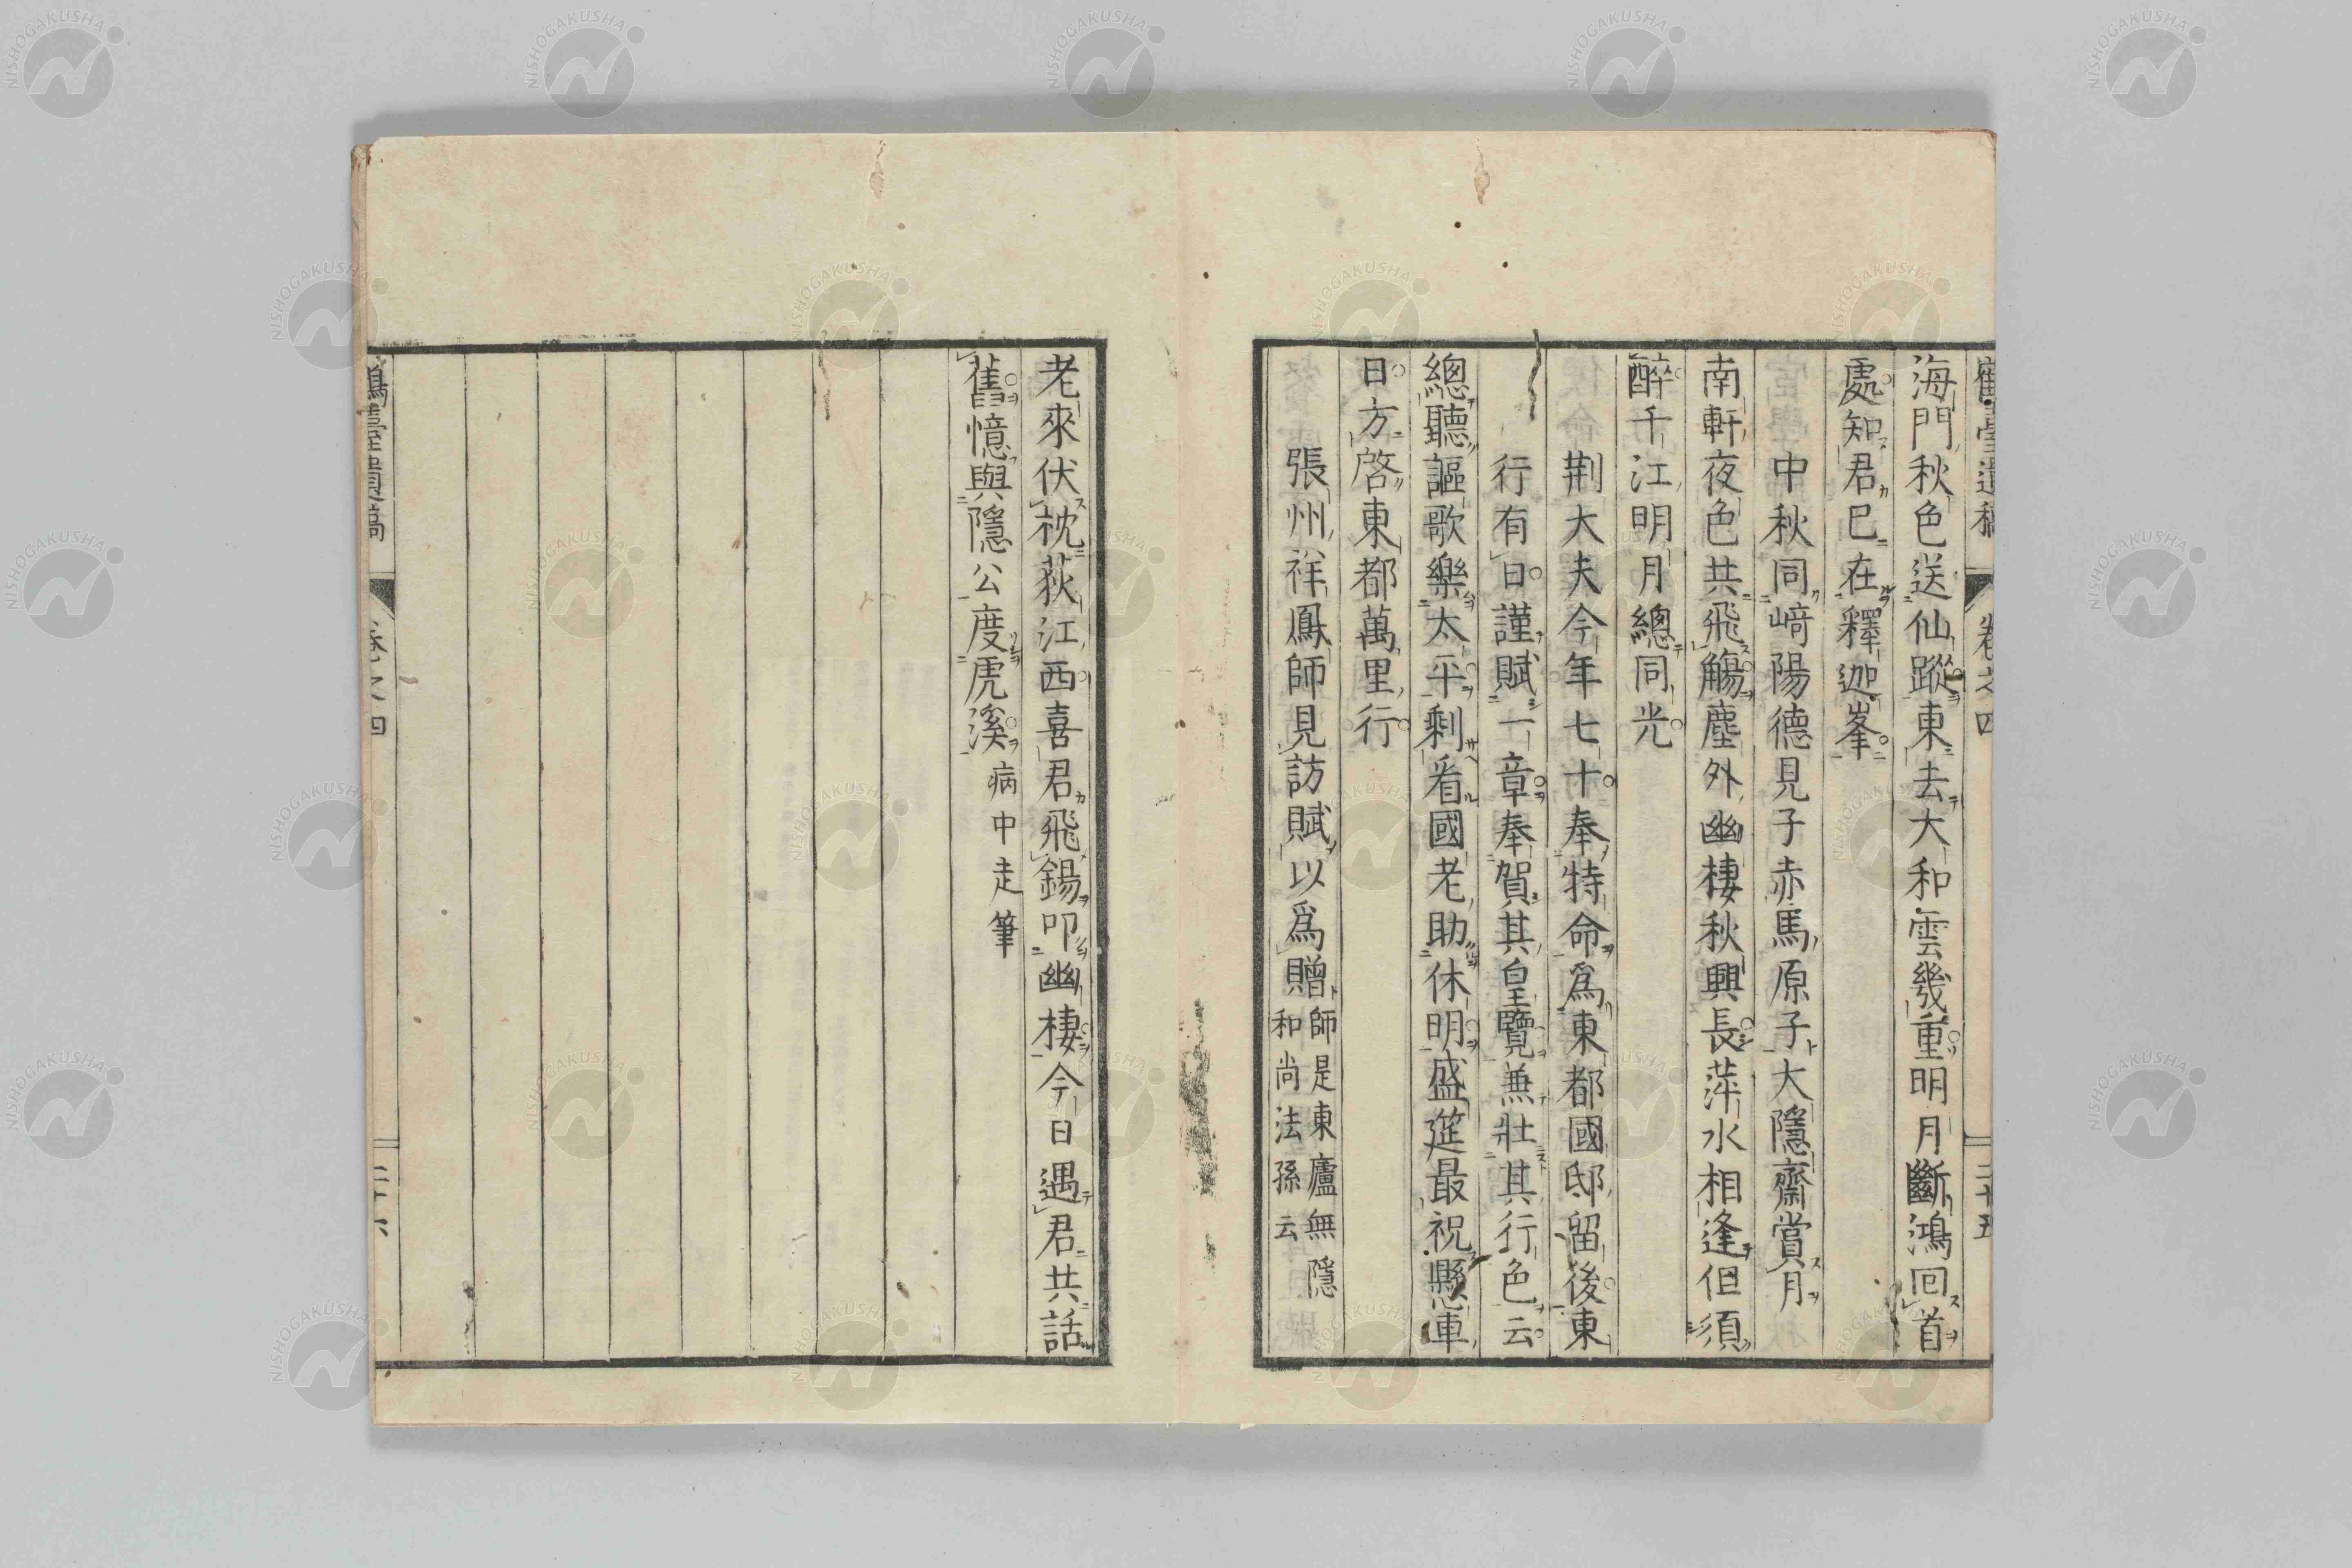 鶴臺遺稿 卷之四 二十五
海門秋色送仙蹤東去大和雲幾重明月斷鴻回首
處知君已在釋迦峯
中秋同﨑陽德見子赤馬原子大隱齋賞月
南軒夜色共飛觴塵外幽棲秋興長萍水相逢但須
醉千江明月總同光
荆大夫今年七十奉特命爲東都國邸留後東
行有日謹賦一章奉賀其皇覽兼壯其行色云
總聽謳歌樂太平剩看國老助休明盛筵最祝懸車
日方啓東都萬里行
張州祥鳳師見訪賦以爲贈
師是東廬無隱
和尚法孫云
老來伏枕荻江西喜君飛錫叩幽棲今日遇君共話
舊憶與隱公度虎溪
病中走筆
鶴臺遺稿 卷之四 二十六
NISHOGAKUSHA